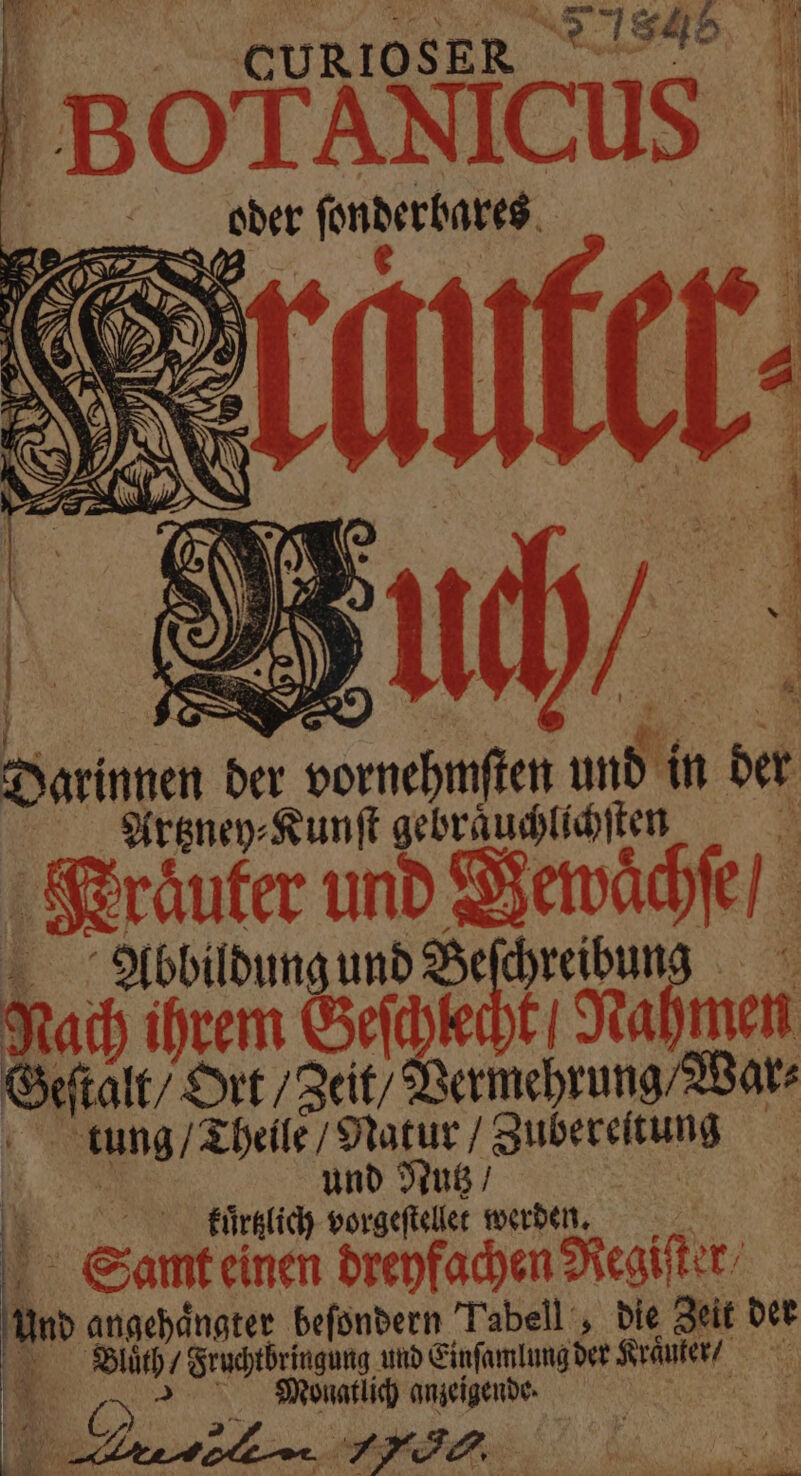 57846
CURIOSER
BOTANICUS
oder ſonderbares
Kraͤuter-
Buch/
Darinnen der vornehmſten und in der
Artzney-Kunſt gebraͤuchlichſten
Kraͤuter und Gewaͤchſe/
Abbildung und Beſchreibung
Nach ihrem Geſchlecht/ Nahmen
Geſtalt/ Ort/ Zeit/ Vermehrung/ War-
tung/ Theile/ Natur/ Zubereitung
und Nutz/
kuͤrtzlich vorgeſtellet werden.
Samt einen dreyfachen Regiſter/
Und angehaͤngter beſondern Tabell, die Zeit der
Bluͤth/ Fruchtbringung und Einſamlung der Kraͤuter/
Monatlich anzeigende.